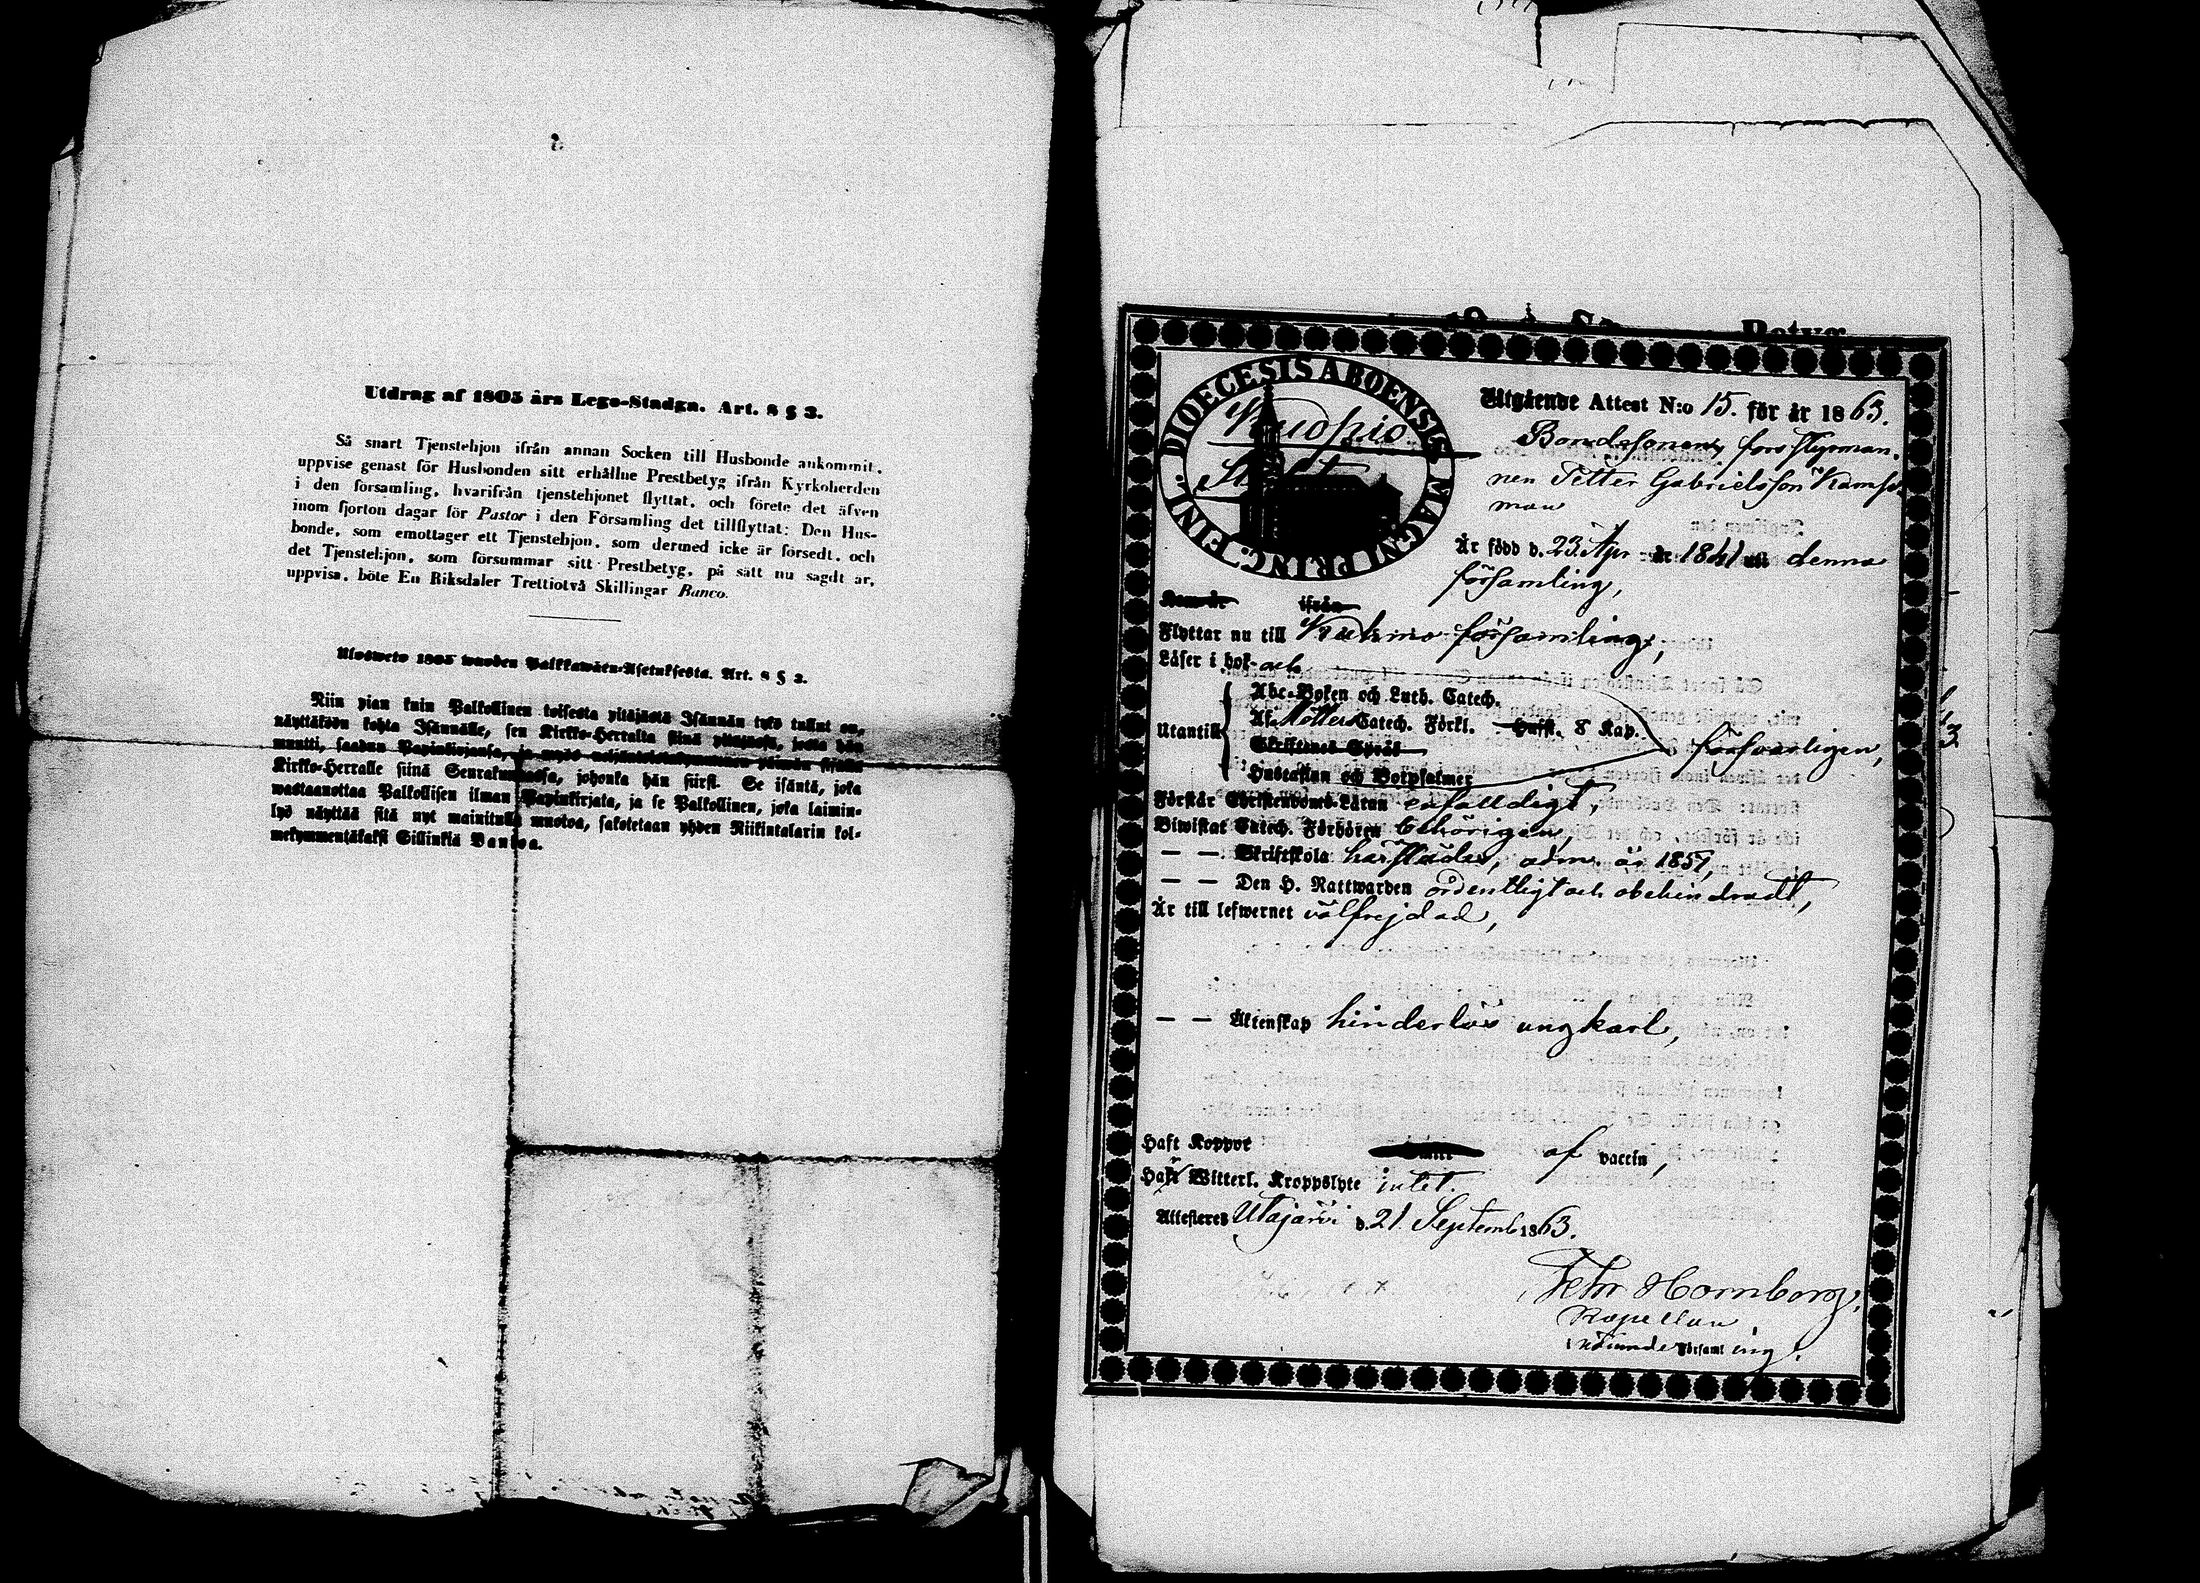 Utdrag af 1805 års Lego-Stadga. Art. 8 § 3.
Så snart Tjenstehjon ifrån annan Socken till Husbonde ankommit,
uppvise genast för Husbonden sitt erhållne Prestbetyg ifrån Kyrkoherden
i den församling, hvarifrån tjenstehjonet flyttat, och förete det äfven
inom fjorton dagar för Pastor i den Församling det tillflyttat: Den Hus-
bonde, som emottager ett Tjenstehjon, som dermed icke är försedt, och
det Tjenstehjon, som försummar sitt Prestbetyg, på sätt nu sagdt är,
uppvisa, böte En Riksdaler Trettiotvå Skillingar Banco.
Ulosweto 1805 wuoden Palkkawäen-Asetuksesta. Art. 8 § 3.
Niin pian kuin Palkollinen toisesta pitäjästä Isännän tykö tullut on,
näyttäköön kohta Isännälle, sen Kirkko-Herralta siinä pitäjässä, josta hän
muutti, saadun Papinkirjansa, ja myös neljäntoistakymmenen päiwän sisällä
Kirkko-Herralle siinä Seurakunnassa, johonka hän siirsi. Se isäntä, joka
wastaanottaa Palkollisen ilman Papinkirjata, ja se Palkollinen, joka laimin-
lyö näyttää sitä nyt mainitulla muotoa, sakotetaan yhden Riikintalarin kol-
mekymmentäkaksi Sillinkiä Bankoa.
Betyg
DIOECESIS ABOENSIS MAGNI PRINC. FINL.
Kuopio
Stift
Utgående Attest N:o 15. för år 1863.
Bondesonen, förs styrman-
nen Petter Gabrielsson Kämsä-
man
Är född d. 23 Apr år 1841 uti denna
församling,
Kom år ifrån
Flyttar nu till Kuhmo församling,
Läser i bok och
Abc-Boken och Luth. Catech.
Utantill Af Möllers Catech. Förkl. Hufst. 8 Kap. försvarligen,
Skriftenes Språk
Hustaflan och Botpsalmer
Förstår Christendoms-Läran enfaldigt,
Biwistat Catech. Förhören behörigen,
— — Skriftskola har , adm. år 1857,
— — Den H. Nattwarden ordentligt och obehindradt,
Är till lefwernet välfrejdad,
— — Äktenskap hinderlös ungkarl,
Haft Koppor af vaccin,
Haft Witterl. Kroppslyte intet.
Attesteres Utajärvi d. 21 Septemb 1863.
Fehr Hornborg,
Kapellan
Församling.